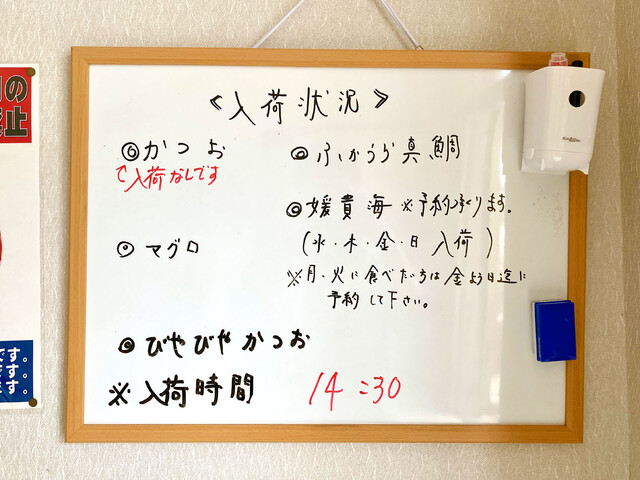 《入荷状況》
◎かつお
入荷なしです
◎ふかうら真鯛
◎媛貴海※予約承ります。
(水・木・金・日 入荷)
※月、火に食べたい方は金よう日迄に
予約して下さい。
◎マグロ
◎びやびやかつお
※入荷時間 14:30
の
止
す。
す。